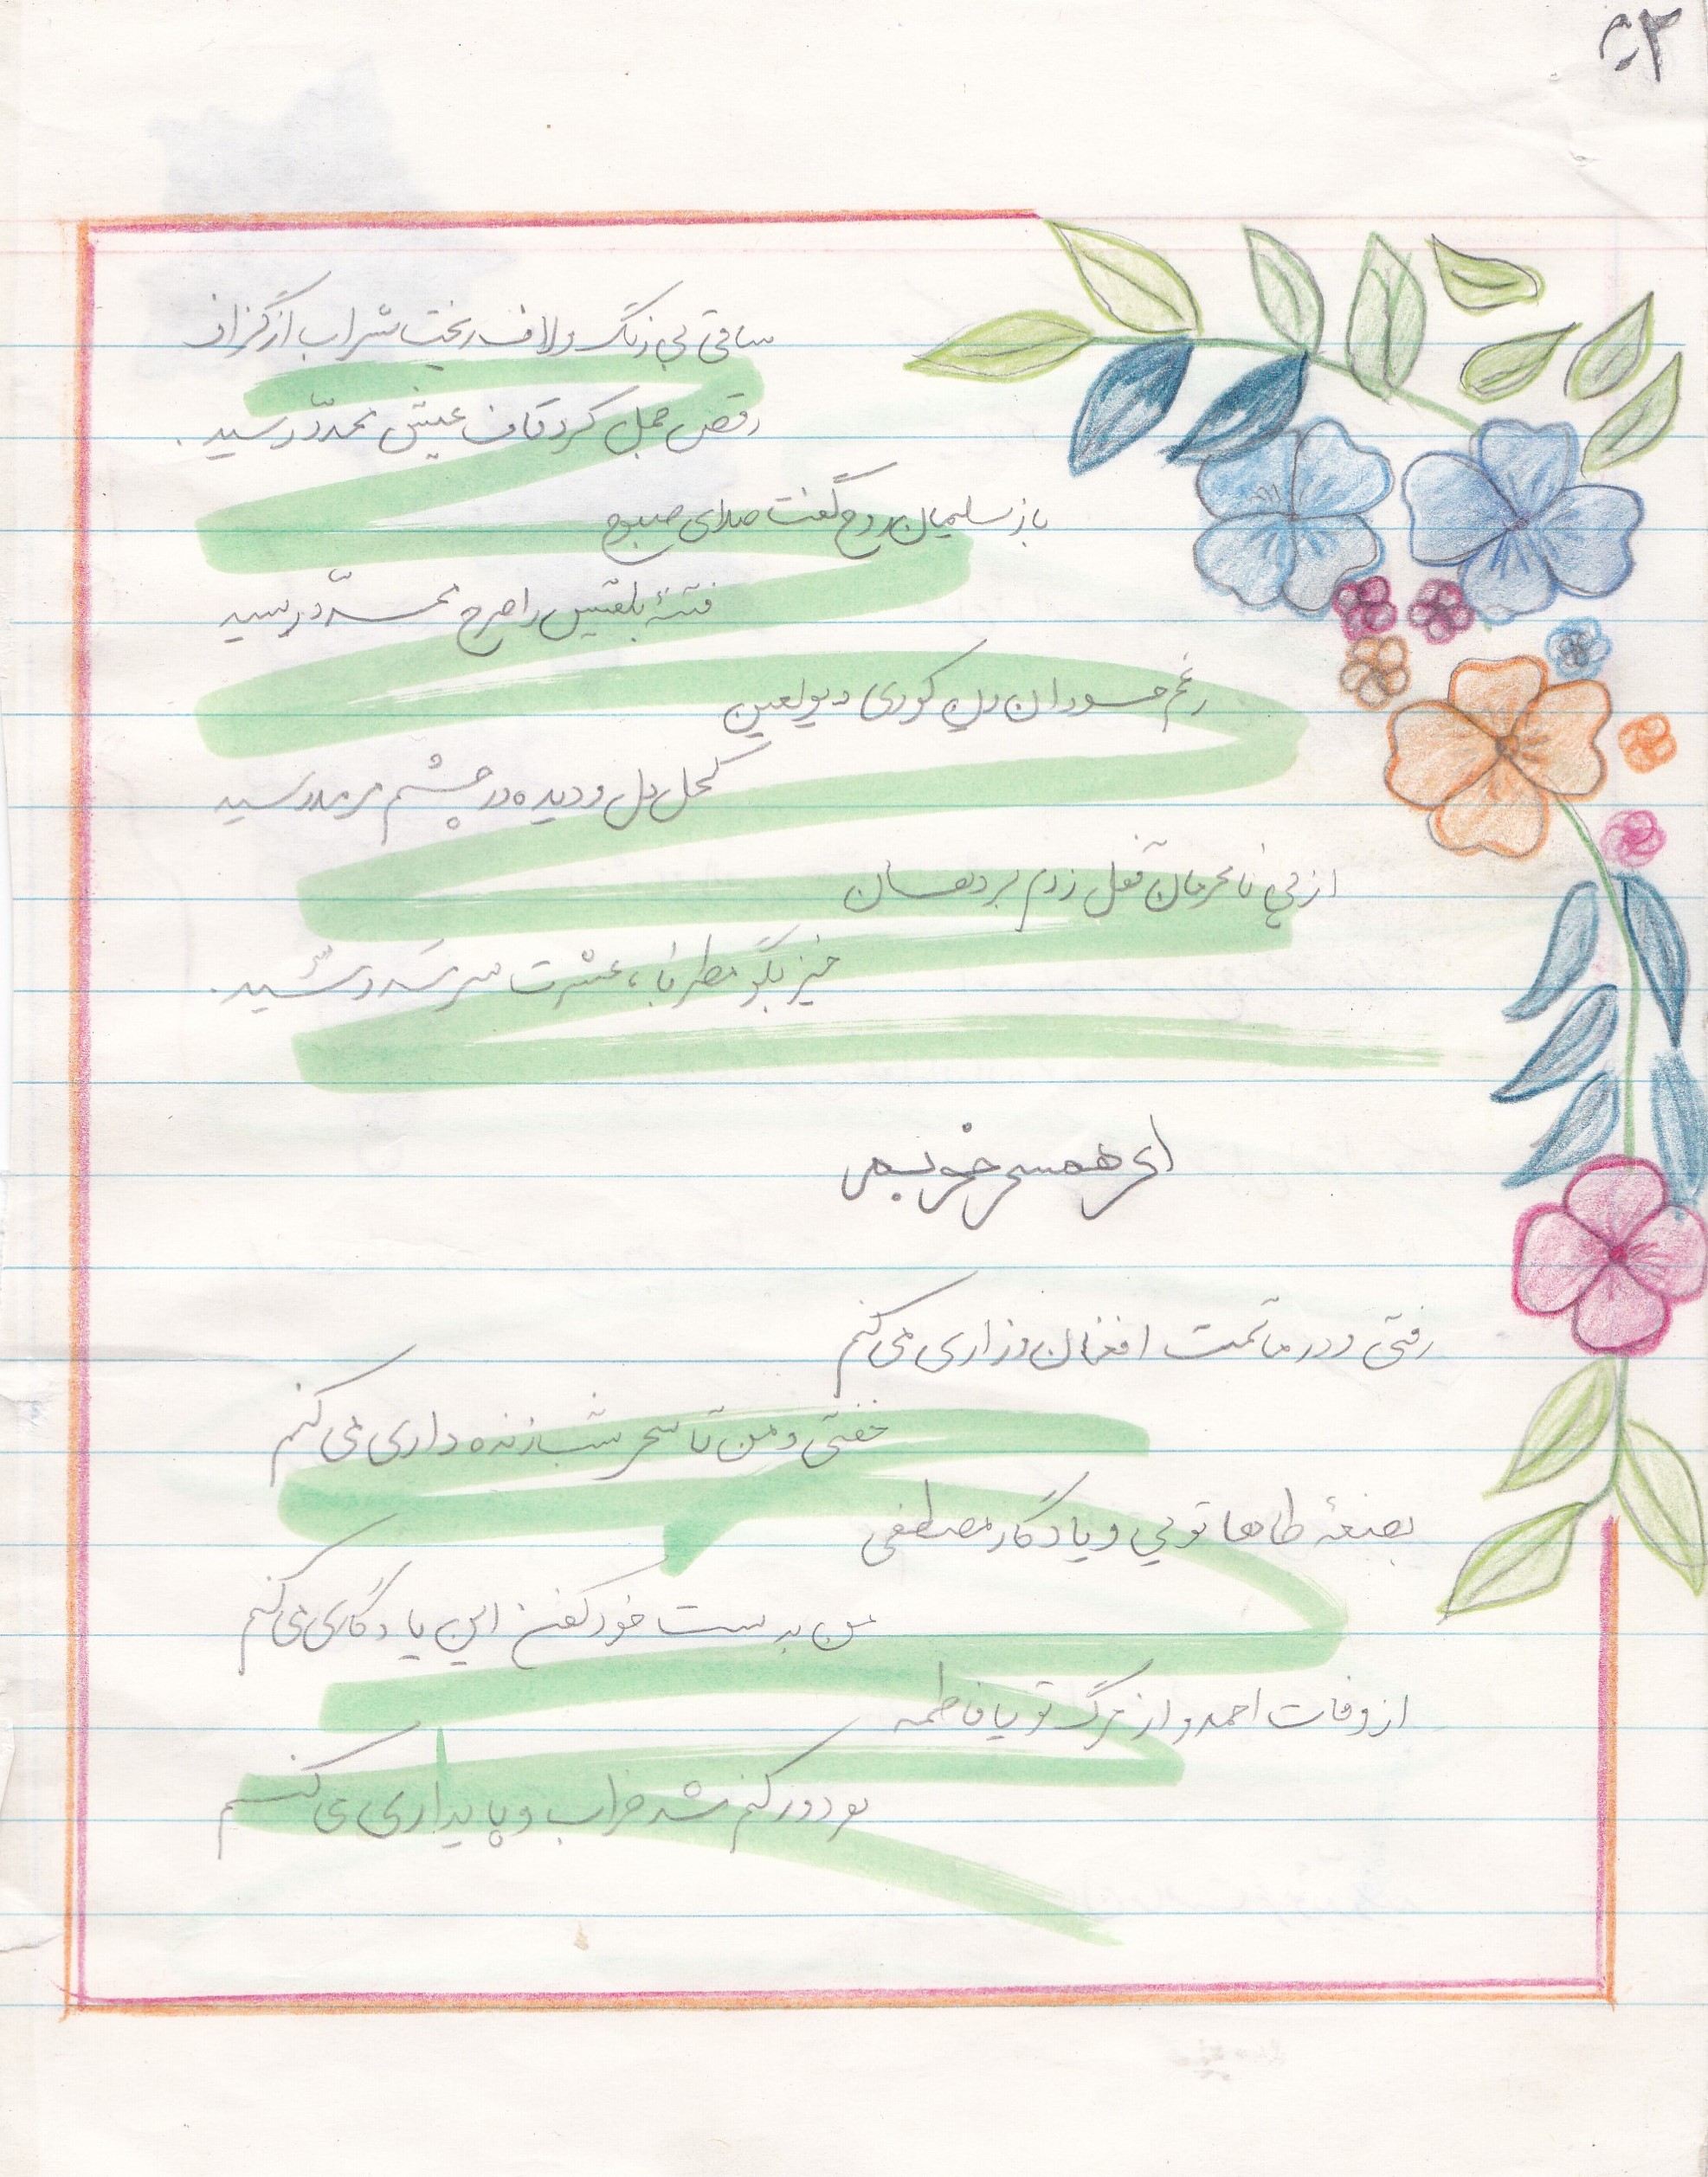 ۳۰۲
ساقی بی رنگ و لاف ریخت شراب از گزاف
رقص جمل کرد قاف عیش ممدّد رسید.
باز سلیمان روح گفت صلای صبوح
فتنهٔ بلقیس را صرح ممرّد رسید
رغم حسودان دین کوری دیو لعین
کحل دل و دیده در چشم مرمد رسید
از پی نامحرمان قفل زدم بر دهان
خیز بگو مطربا، عشرت سرمد رسید.
ای همسر خوبم
رفتی و در ماتمت افغان و زاری می کنم
خفتی و من تا سحر شب زنده داری می کنم
بضعهٔ طاها تویی و یادگار مصطفی
من بدست خود کفن این یادگاری می کنم
از وفات احمد و از مرگ تو یا فاطمه
هر دو رکنم شد خراب و پایداری می کنم